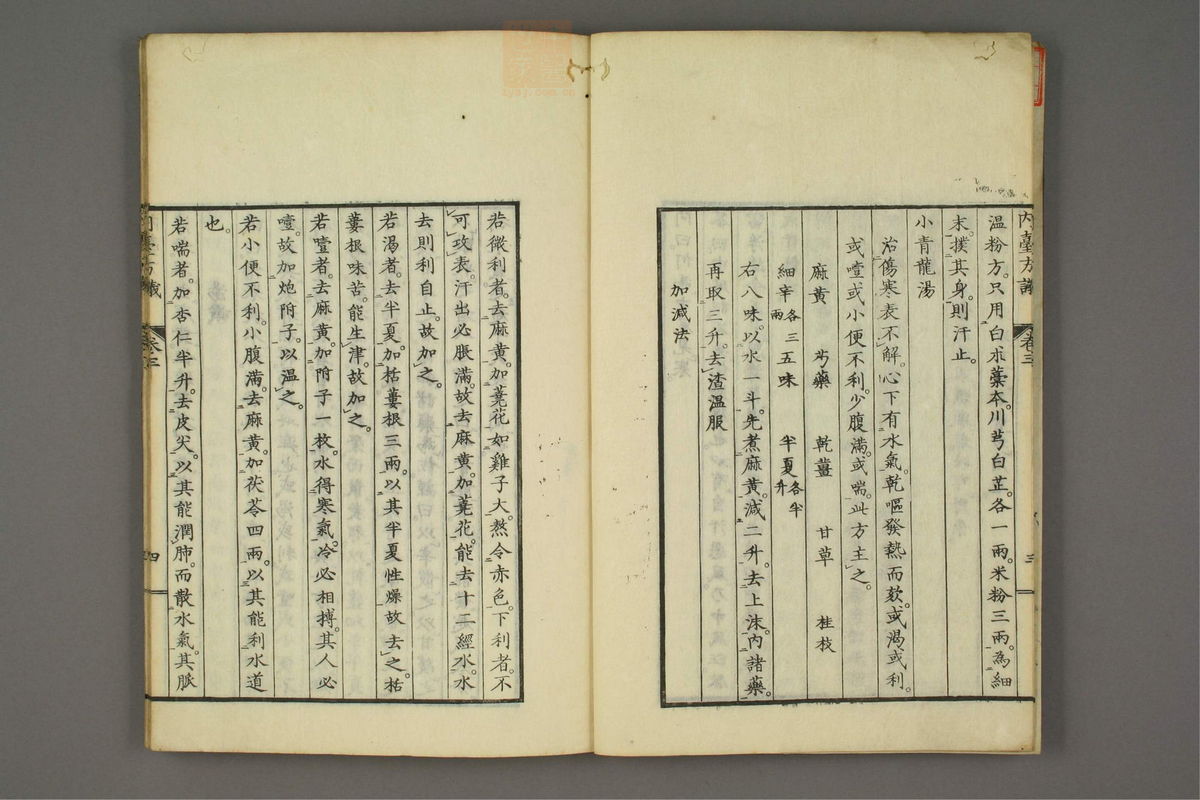 内臺方議 卷三 三
温粉方。只用白朮藁本。川芎白芷。各一兩。米粉三兩。為細
末。撲其身。則汗止。
小青龍湯
治傷寒表不解。心下有水氣。乾嘔發熱而欬。或渴或利。
或噎或小便不利。少腹滿。或喘。此方主之。
麻黄 芍藥 乾薑 甘草 桂枝
細辛各三兩 五味 半夏各半升
右八味。以水一斗。先煮麻黄。減二升。去上沫。内諸藥。
再取三升。去渣温服
加減法
若微利者。去麻黄。加蕘花如雞子大。熬令赤色。下利者。不
可攻表。汗出必脹滿。故去麻黄。加蕘花。能去十二經水。水
去則利自止。故加之。
若渴者。去半夏。加栝蔞根三兩。以其半夏性燥故去之。栝
蔞根味苦。能生津。故加之。
若噎者。去麻黄。加附子一枚。水得寒氣。冷必相搏。其人必
噎。故加炮附子。以温之。
若小便不利。小腹滿。去麻黄。加茯苓四兩。以其能利水道
也。
若喘者。加杏仁半升。去皮尖。以其能潤肺。而散水氣。其脈
内臺方議 卷三 四